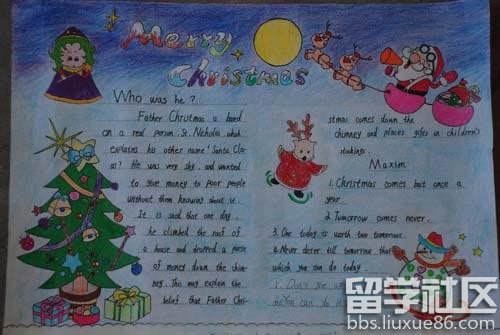 Merry
Christmas
Who was he?
Father Christmas a based
on a real person, St. Nicholas, which
explains his other name 'Santa Cla-
us? He was very shy, and wanted
to give money to poor people
without them knowing about it.
It is said that one day,
he climbed the roof of
a house and dropped a purse
of money down the chim-
ney. This may explain the
belief that Father Chri-
stmas comes down the
chimney and places gifts in children's
stockings.
Maxim
1. Christmas comes but once a
year
2. Tomorrow comes never.
3. One today is worth two tomorrows.
4. Never defer till tomorrow that
which you can do today.
留学社区
bbs.liuxue86.com